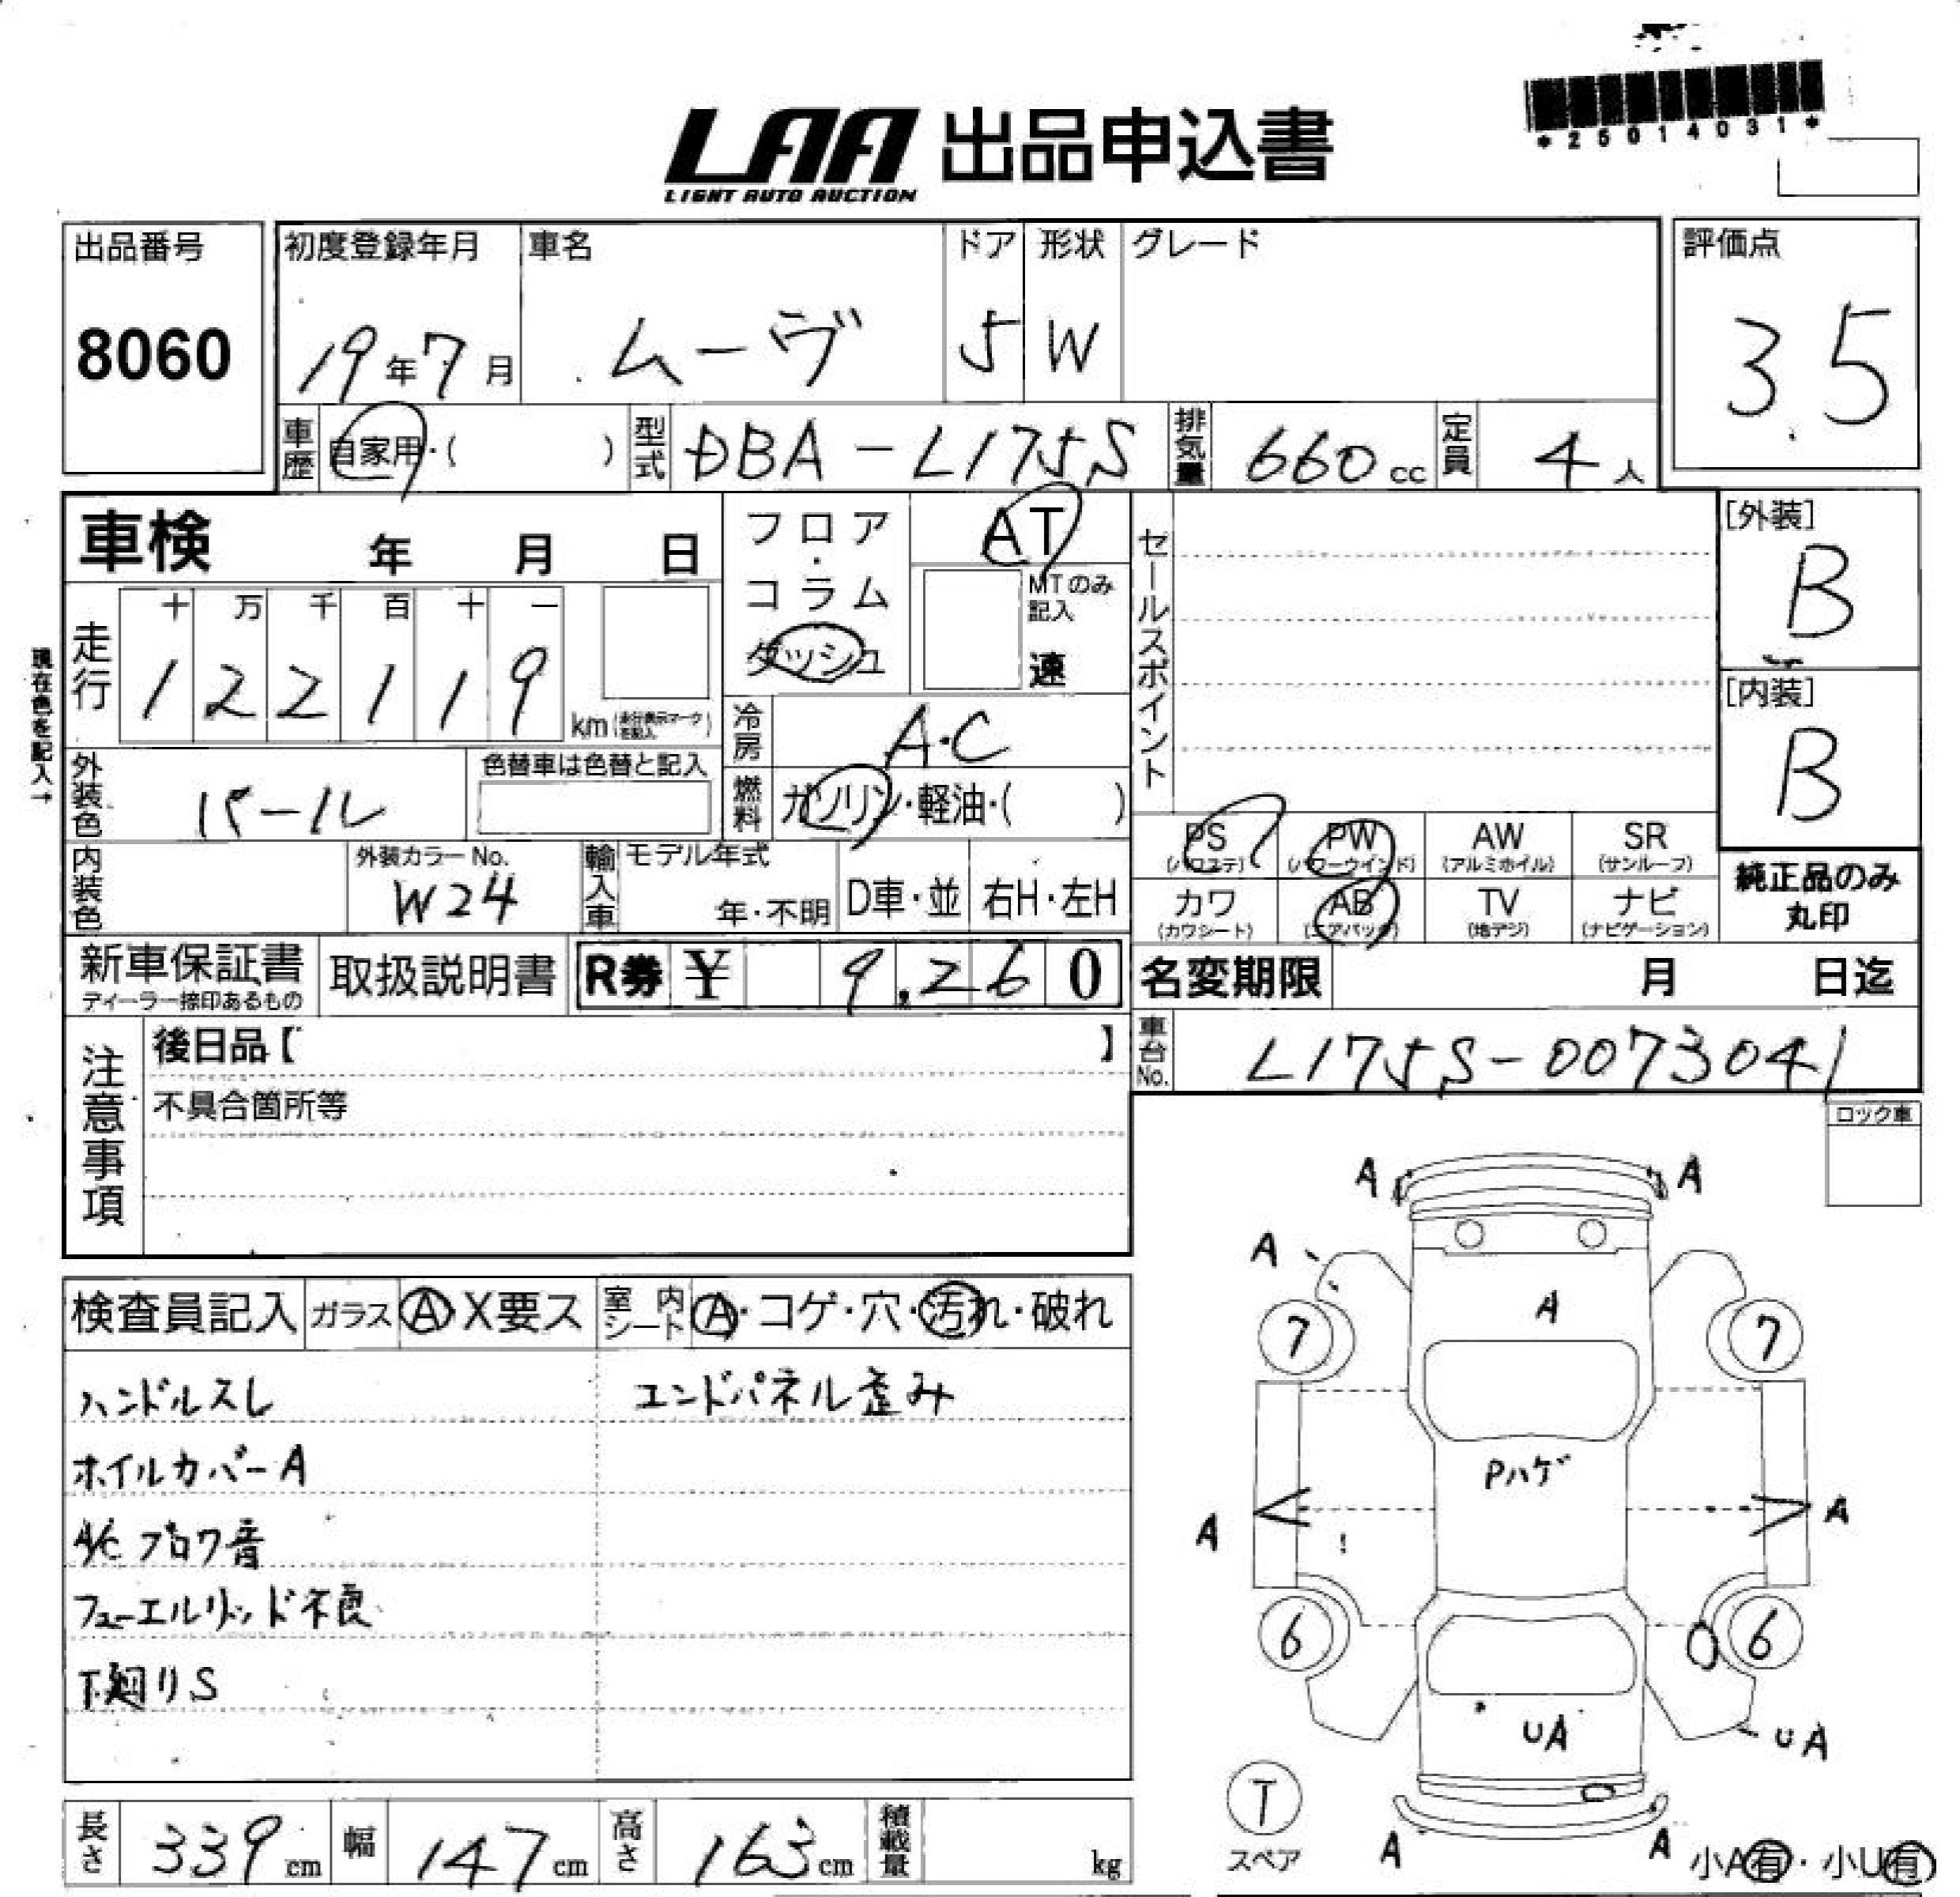 *25014031*
LAA 出品申込書
LIGHT AUTO AUCTION
出品番号 8060
初度登録年月 19年7月
車名 ムーヴ
ドア 5
形状 W
グレード
評価点 3.5
車歴 自家用・( )
型式 DBA-L175S
排気量 660cc
定員 4人
車検 年 月 日
フロア・コラム ダッシュ
AT
MTのみ記入 速
セールスポイント
[外装] B
[内装] B
現在色を記入→
走行 十 万 千 百 十 一
122119 km (走行表示マークを記入)
冷房 A・C
外装色 パール
色替車は色替と記入
燃料 ガソリン・軽油・( )
内装色
外装カラーNo. W24
輸入車 モデル年式 年・不明 D車・並 右H・左H
PS (パワステ) PW (パワーウインド) AW (アルミホイル) SR (サンルーフ)
カワ (カワシート) AB (エアバック) TV (地デジ) ナビ (ナビゲーション)
純正品のみ丸印
新車保証書 ディーラー捺印あるもの
取扱説明書
R券 ¥ 9,260
名変期限 月 日迄
車台No. L175S-0073041
注意事項
後日品【 】
不具合箇所等
ロック車
検査員記入 ガラス A・X要ス 室内シート A・コゲ・穴・汚れ・破れ
ハンドルスレ エンドパネル歪み
ホイルカバーA
A/C ブロワ音
フューエルリッド不良
下廻りS
A A
A
A
7 7
Pハゲ
A A
6 6
UA
UA
T
スペア
A A
小A有・小U有
長さ 339cm 幅 147cm 高さ 163cm 積載量 kg